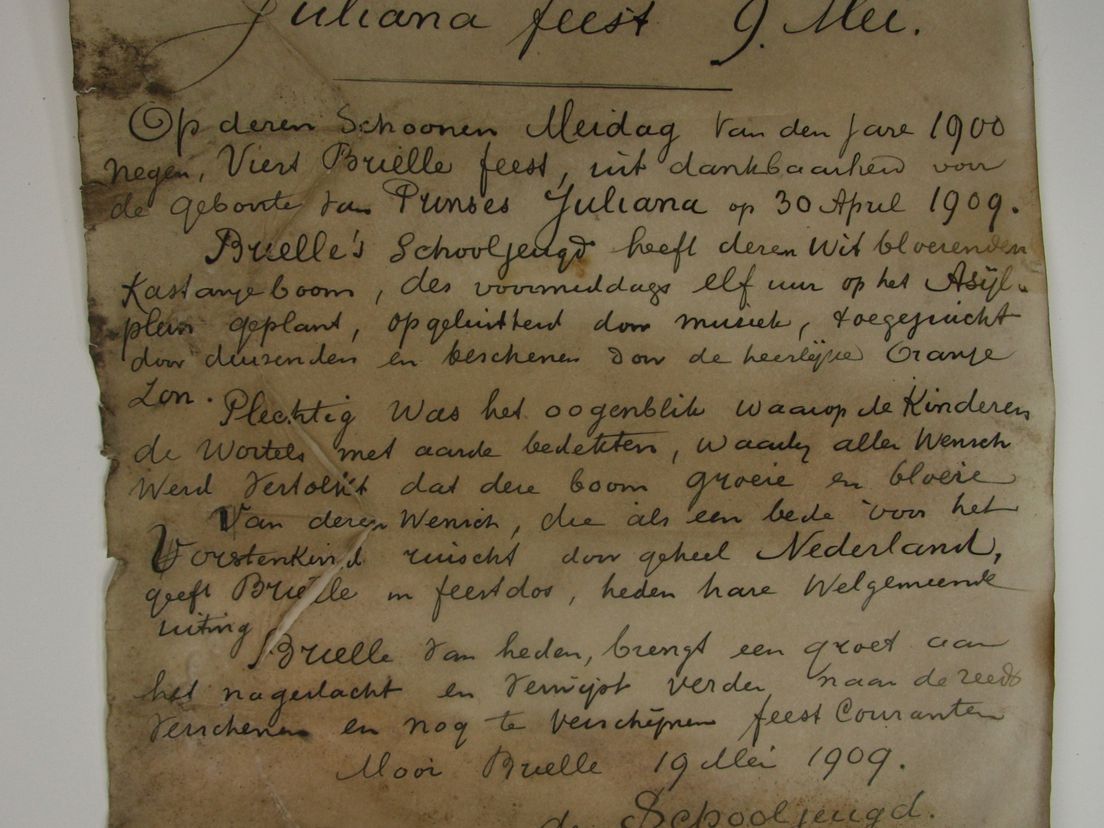 Juliana feest 9. Mei.
Op dezen Schoonen Meidag van den Jare 1900
negen, Viert Brielle feest, uit dankbaarheid voor
de geboorte van Prinses Juliana op 30 April 1909.
Brielle's Schooljeugd heeft dezen Wit bloeienden
Kastanjeboom, des voormiddags elf uur op het Asijl-
plein geplant, opgeluisterd door musiek, toegejuicht
door duizenden en beschenen door de heerlijke Oranje
Zon.
Plechtig Was het oogenblik waarop de Kinderen
de Wortels met aarde bedekten, waarbij aller Wensch
Werd Vertolkt dat deze boom groeie en bloeie
Van dezen Wensch, die als een bede voor het
Vorstenkind ruischt door geheel Nederland,
geeft Brielle in feestdos, heden hare Welgemeende
uiting
Brielle van heden, brengt een groet aan
het nageslacht en verwijst verder naar de reeds
Verschenen en nog te Verschijnen feest Couranten
Mooi Brielle 19 Mei 1909.
de Schooljeugd.